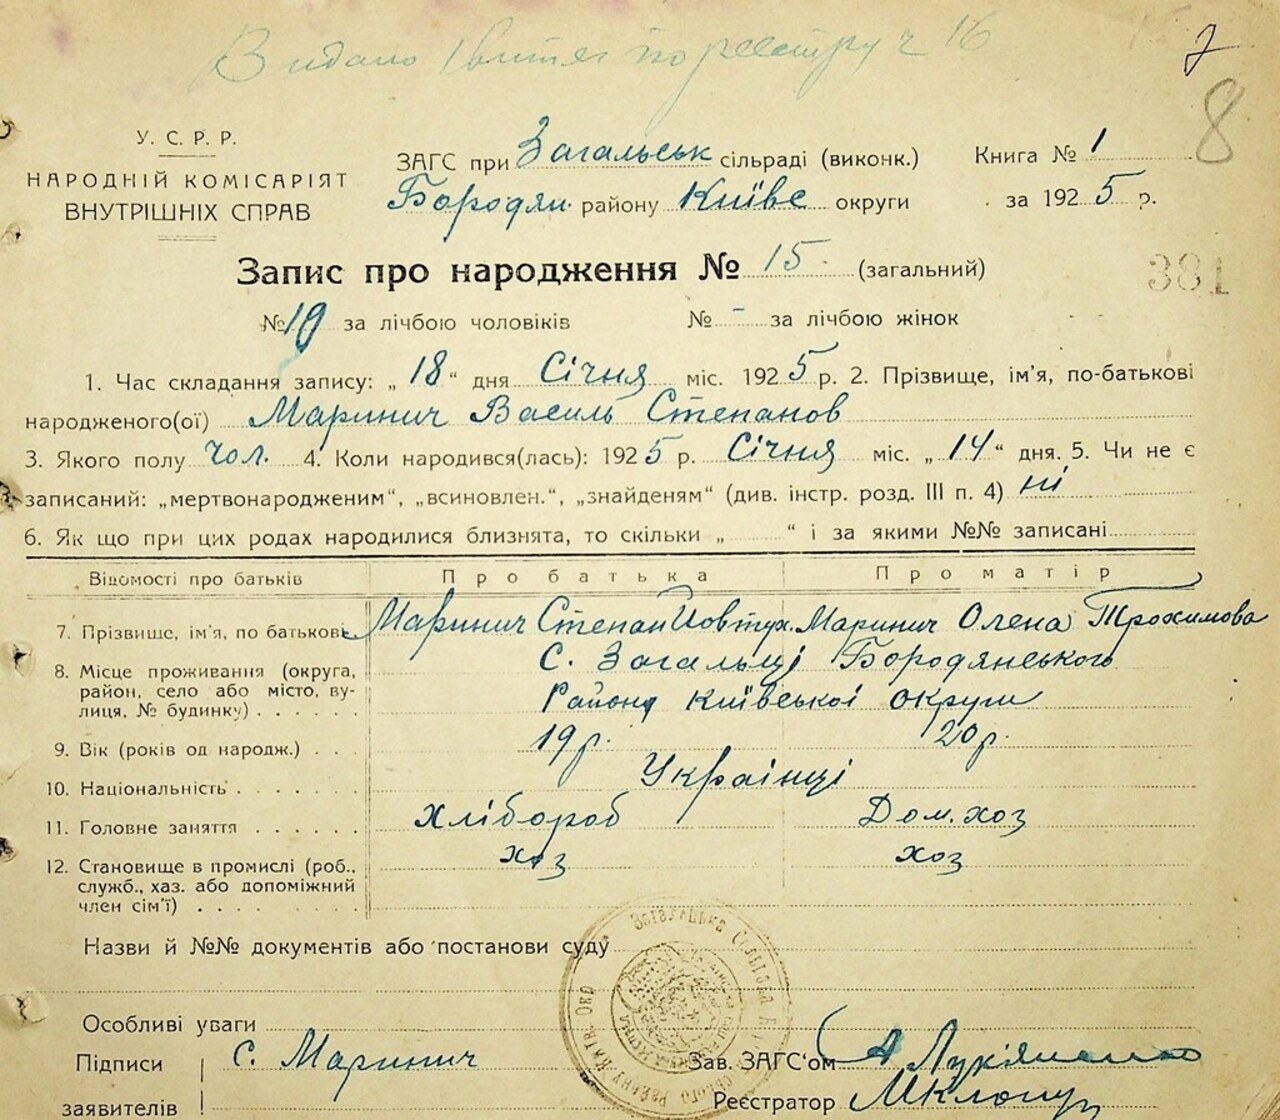 Видано 1 витяг по реєстру ч 16
7
8
У. С. Р. Р.
НАРОДНІЙ КОМІСАРІЯТ
ВНУТРІШНІХ СПРАВ
ЗАГС при Загальськ сільраді (виконк.)
Бородян. району Київс округи
Книга № 1
за 1925 р.
Запис про народження № 15 (загальний)
381
№ 10 за лічбою чоловіків № - за лічбою жінок
1. Час складання запису: „ 18 “ дня Січня міс. 1925 р. 2. Прізвище, ім'я, по-батькові
народженого(ої) Маринич Василь Степанов
3. Якого полу чол. 4. Коли народився(лась): 1925 р. Січня міс. „ 14 “ дня. 5. Чи не є
записаний: „мертвонародженим“, „всиновлен.“, „знайденям“ (див. інстр. розд. III п. 4) ні
6. Як що при цих родах народилися близнята, то скільки „ “ і за якими №№ записані
Відомості про батьків Про батька Про матір
7. Прізвище, ім'я, по батькові Маринич Степан Йовтух. Маринич Олена Трохимова
8. Місце проживання (округа, район, село або місто, вулиця, № будинку) с. Загальці Бородянського
Району Київської округи
9. Вік (років од народж.) 19 р. 20 р.
10. Національність Українці
11. Головне заняття хлібороб Дом. хоз
12. Становище в промислі (роб., служб., хаз. або допоміжний член сім'ї) хоз хоз
Назви й №№ документів або постанови суду
Особливі уваги
Підписи заявителів С. Маринич
Зав. ЗАГС'ом А Лук'яненко
Реєстратор